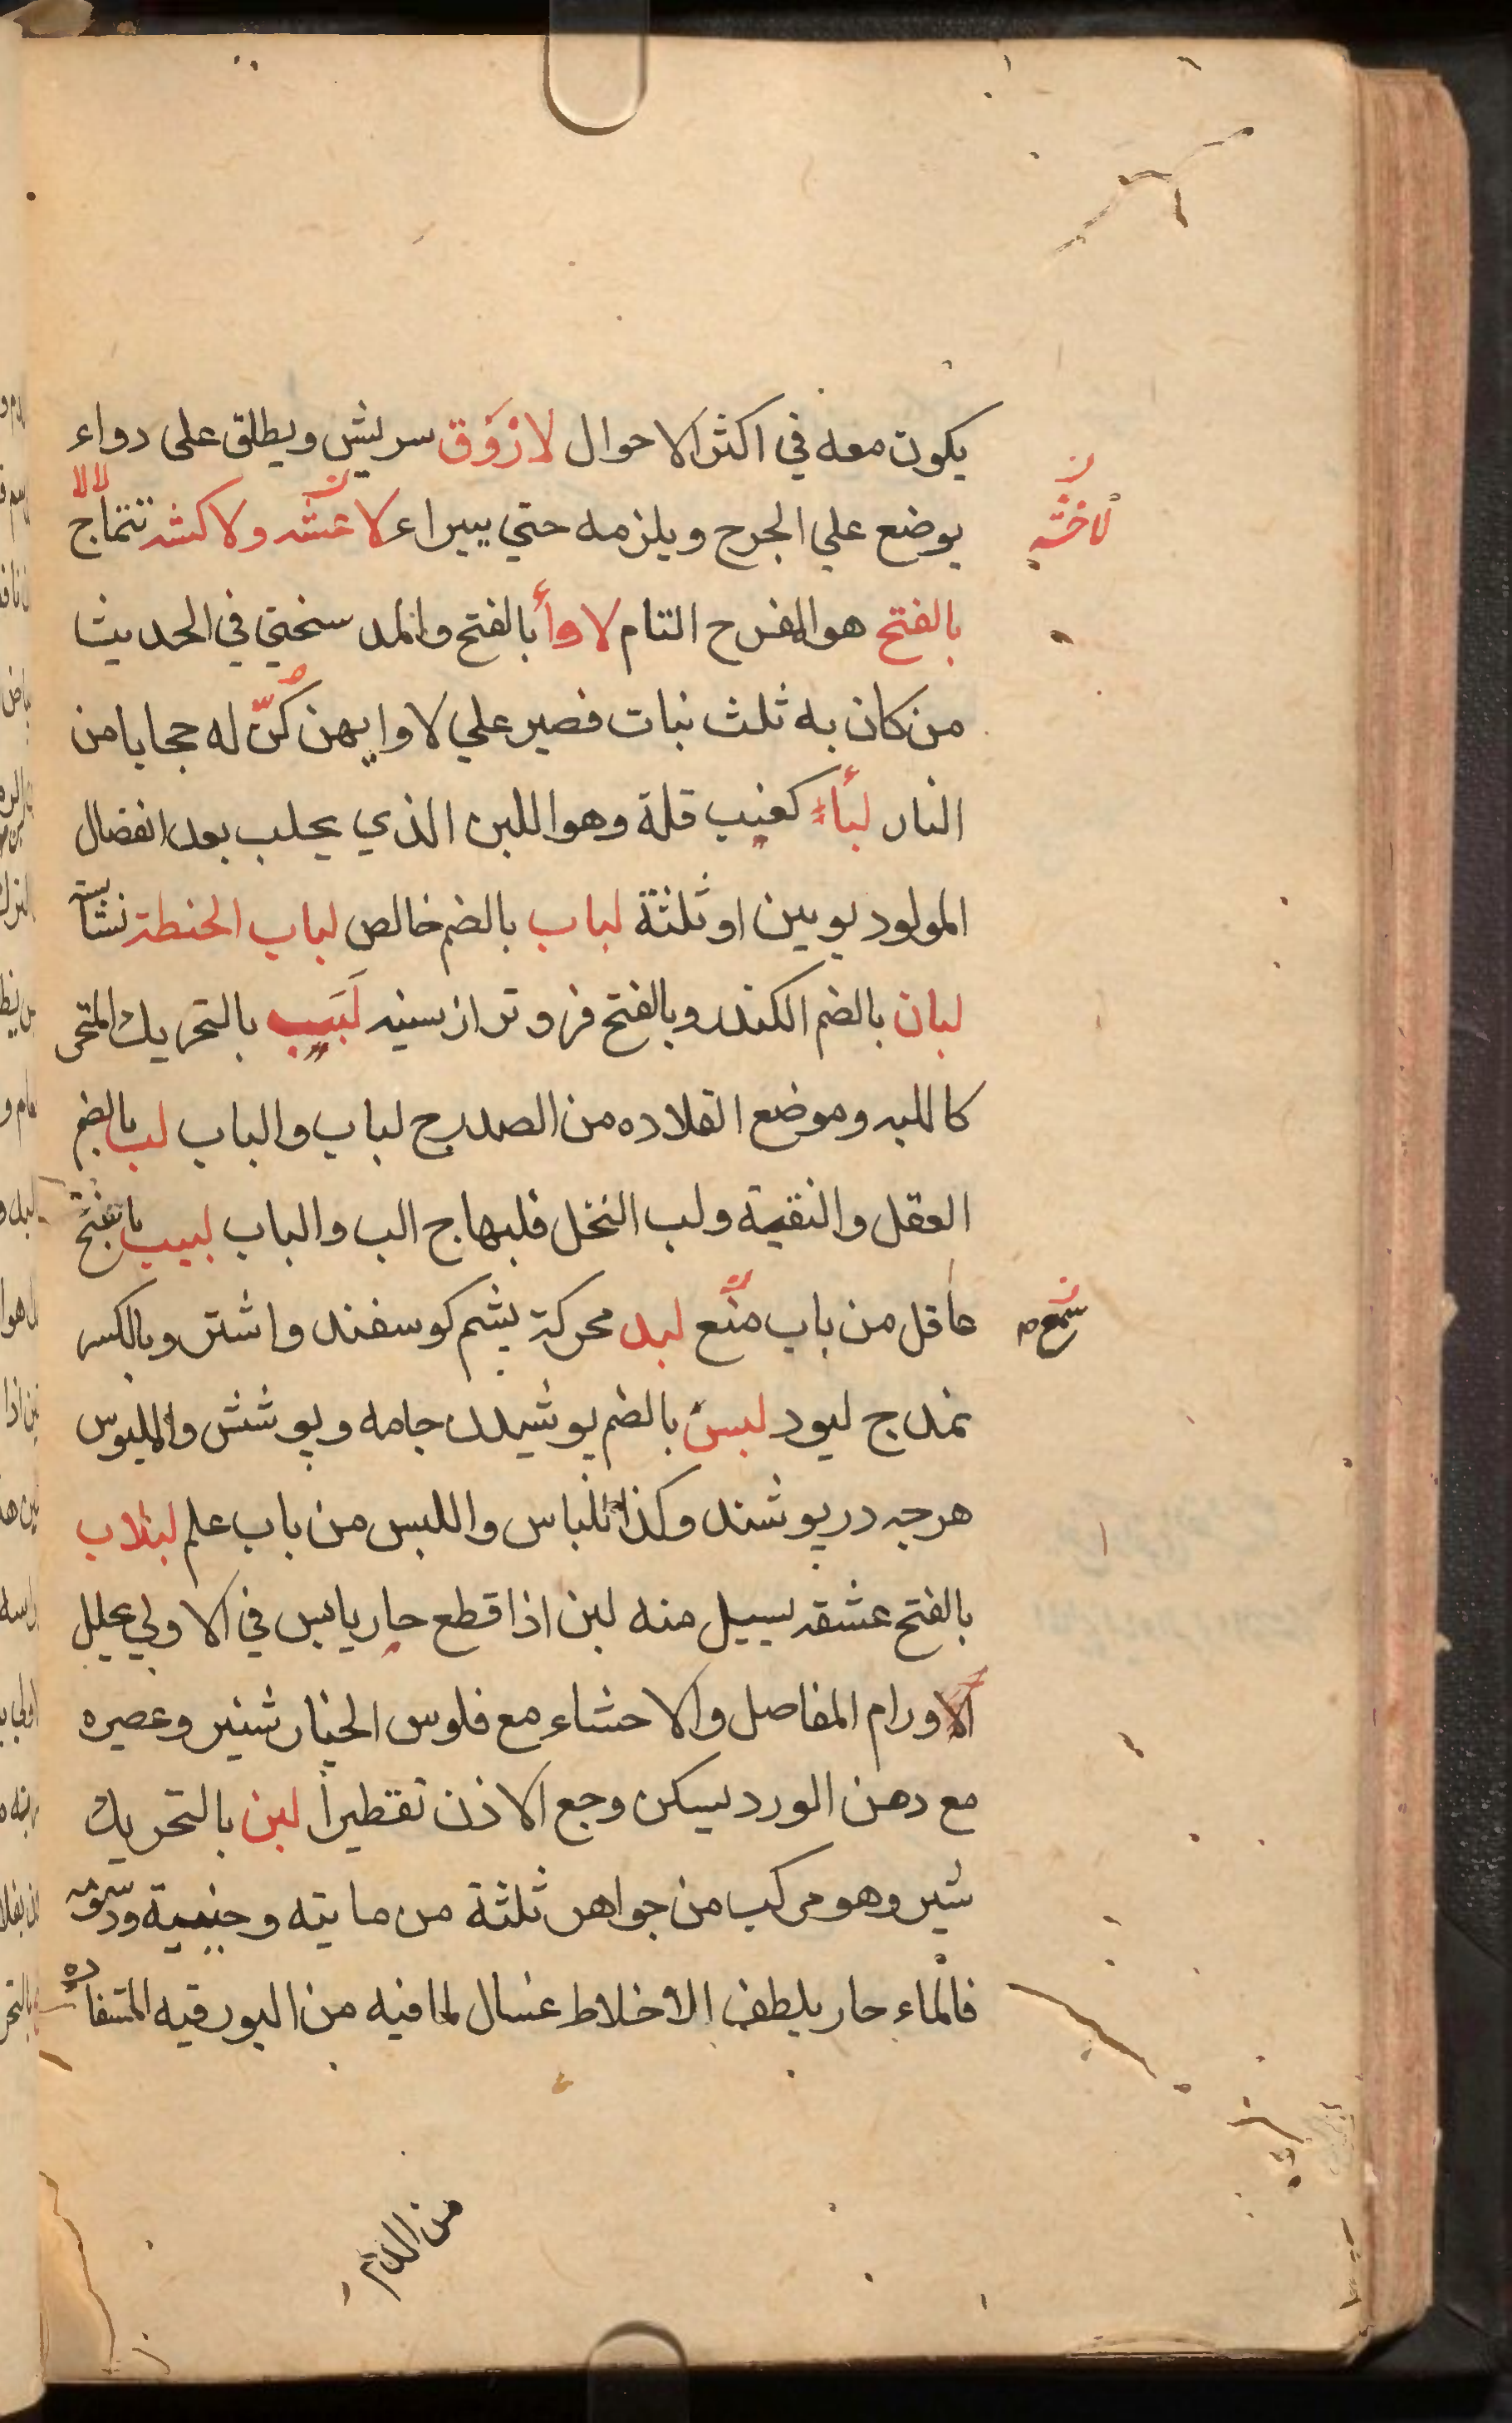 يكون معه في اكثر الاحوال لازوق سريش ويطلق على دواء
يوضع علي الجرح ويلزمه حتي يبراء لاعشه ولاكشه تتماج لالا
لاخشه
بالفتح هو الفرح التام لاوأ بالفتح والمد سختي في الحديث
من كان به ثلث بنات فصبر علي لاوايهن كنّ له حجابا من
النار لباء كعنب قلة وهو اللبن الذي يحلب بعد انفصال
المولود يومين او ثلثة لباب بالضم خالص لباب الحنطة نشاسته
لبان بالضم الكندر وبالفتح فروتر از سينه لَبَب بالتحريك المتحر
كاللبه وموضع القلاده من الصدر ج لباب والباب لب بالضم
العقل والنقية ولب النخل قلبها ج الب والباب لبيب بالفتح
عاقل من باب منع لبد محركة پشم كوسفند واشتر وبالكسر
سمع
نمد ج لبود لبس بالضم پوشيدن جامه وپوشش والملبوس
هرچه درپوشند وكذا اللباس واللبس من باب علم لبلاب
بالفتح عشقه يسيل منه لبن اذا قطع حار يابس في الاولي يحلل
الاورام المفاصل والاحشاء مع فلوس الخيار شنبر وعصيره
مع دهن الورد يسكن وجع الاذن تقطيراً لبن بالتحريك
شير وهو مركب من جواهر ثلثة من مايته وجبنية ودسومه
فالماء حار يلطف الاخلاط غسال لما فيه من البورقيه المتسفاده
من الدم